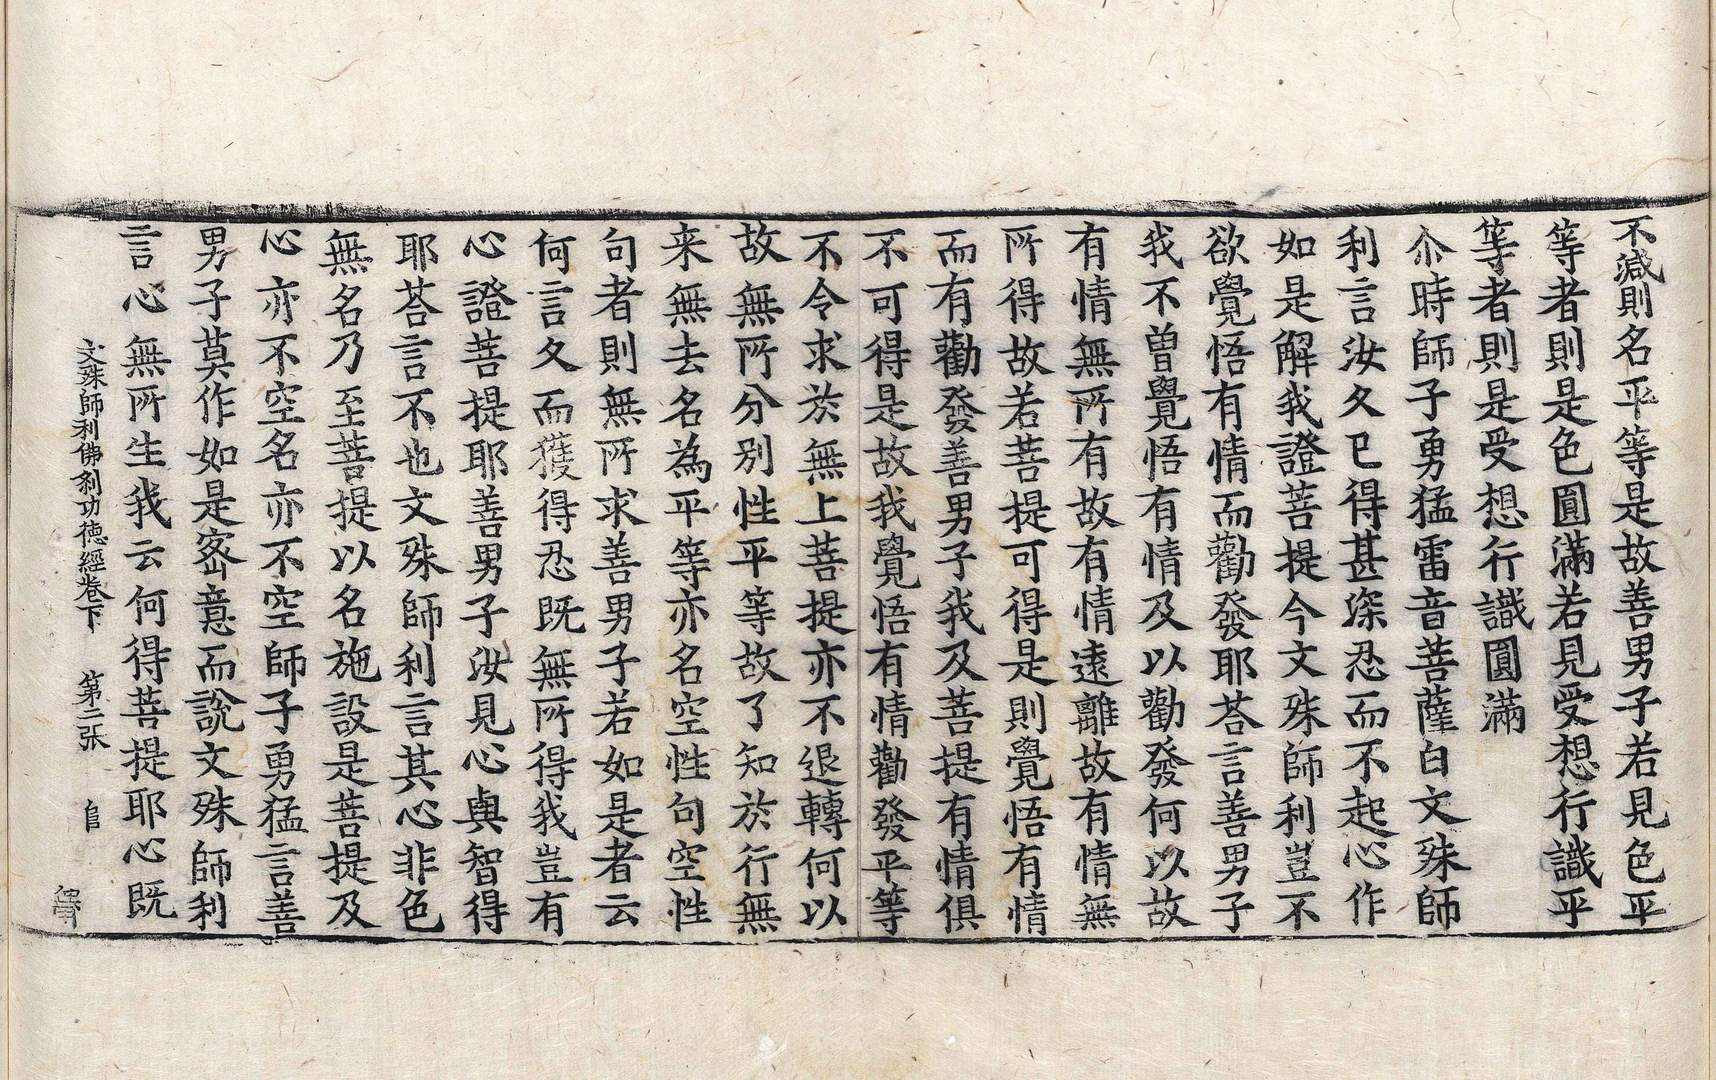 不減則名平等是故善男子若見色平
等者則是色圓滿若見受想行識平
等者則是受想行識圓滿
尒時師子勇猛雷音菩薩白文殊師
利言汝久已得甚深忍而不起心作
如是解我證菩提今文殊師利豈不
欲覺悟有情而勸發耶荅言善男子
我不曽覺悟有情及以勸發何以故
有情無所有故有情遠離故有情無
所得故若菩提可得是則覺悟有情
而有勸發善男子我及菩提有情俱
不可得是故我覺悟有情勸發平等
不令求於無上菩提亦不退轉何以
故無所分別性平等故了知於行無
来無去名為平等亦名空性句空性
句者則無所求善男子若如是者云
何言久而獲得忍既無所得我豈有
心證菩提耶善男子汝見心與智得
耶荅言不也文殊師利言其心非色
無名乃至菩提以名施設是菩提及
心亦不空名亦不空師子勇猛言善
男子莫作如是宻意而說文殊師利
言心無所生我云何得菩提耶心既
文殊師利佛刹功德經卷下 第二张 自